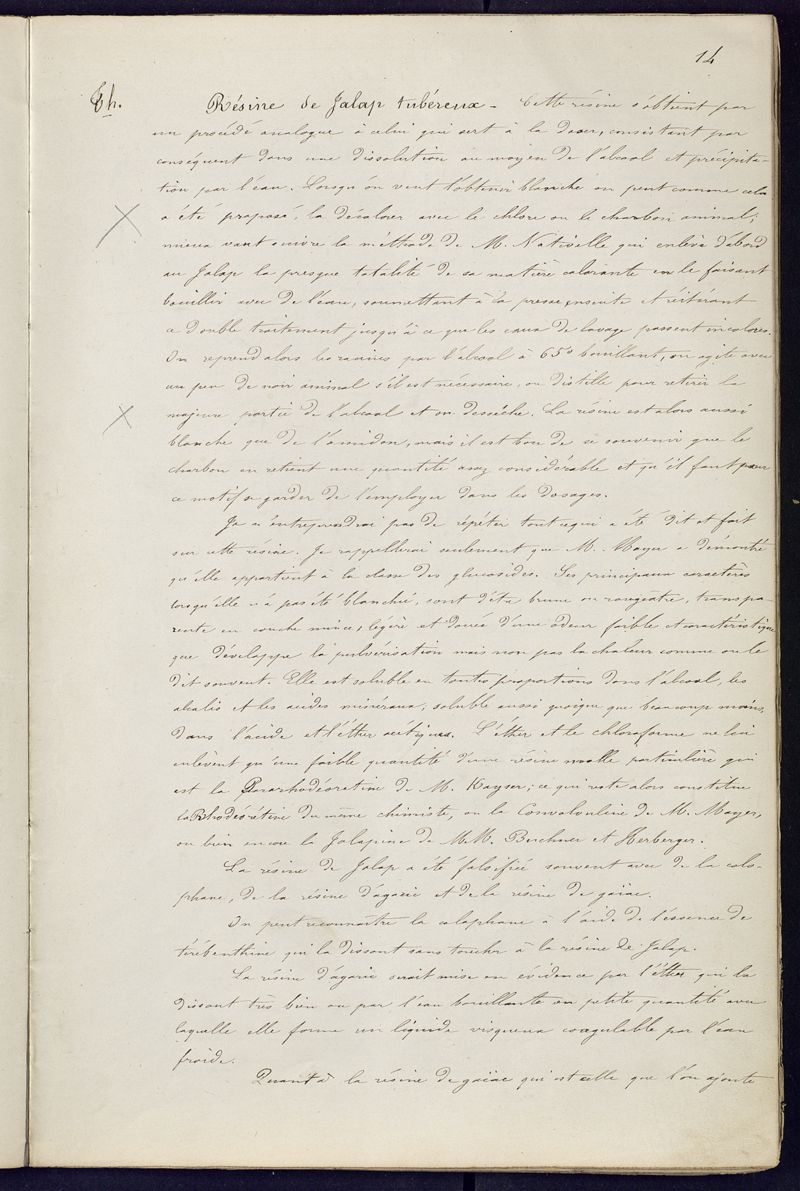 14
Th.
Résine de Jalap tubéreux - Cette résine s'obtient par
un procédé analogue à celui qui sert à la doser, consistant par
conséquent dans une dissolution au moyen de l'alcool et précipita-
tion par l'eau. Lorsqu'on veut l'obtenir blanche on peut comme cela
a été proposé, la décolorer avec le chlore ou le charbon animal;
mieux vaut suivre la méthode de M. Nativelle qui enlève d'abord
au Jalap la presque totalité de sa matière colorante en le faisant
bouillir avec de l'eau, soumettant à la presse ensuite et réitérant
ce double traitement jusqu'à ce que les eaux de lavage passent incolores.
On reprend alors les racines par l'alcool à 65° bouillant, on agite avec
un peu de noir animal s'il est nécessaire, on distille pour retirer la
majeure partie de l'alcool et on dessèche. La résine est alors aussi
blanche que de l'amidon, mais il est bon de se souvenir que le
charbon en retient une quantité assez considérable et qu'il faut pour
ce motif se garder de l'employer dans les dosages.
Je n'entreprendrai pas de répéter tout ce qui a été dit et fait
sur cette résine. Je rappellerai seulement que M. Mayer a démontré
qu'elle appartient à la classe des glucosides. Ses principaux caractères
lorsqu'elle n'a pas été blanchie, sont d'être brune ou rougeâtre, transpa-
rente en couche mince, légère et douée d'une odeur faible et caractéristique
que développe la pulvérisation mais non pas la chaleur comme on le
dit souvent. Elle est soluble en toutes proportions dans l'alcool, les
alcalis et les acides minéraux, soluble aussi quoique que beaucoup moins,
dans l'acide et l'éther acétiques. L'éther et le chloroforme ne lui
enlèvent qu'une faible quantité d'une résine molle particulière qui
est la Pararhodéorétine de M. Kayser; ce qui reste alors constitue
la Rhodéorétine du même chimiste, ou la Convolvuline de M. Mayer,
ou bien encore la Jalapine de M.M. Buchner et Herberger.
La résine de Jalap a été falsifiée souvent avec de la colo-
phane, de la résine d'agaric et de la résine de gaïac.
On peut reconnaître la colophane à l'aide de l'essence de
térébenthine qui la dissout sans toucher à la résine de Jalap.
La résine d'agaric serait mise en évidence par l'éther qui la
dissout très bien ou par l'eau bouillante en petite quantité avec
laquelle elle forme un liquide visqueux coagulable par l'eau
froide.
Quant à la résine de gaïac qui est celle que l'on ajoute